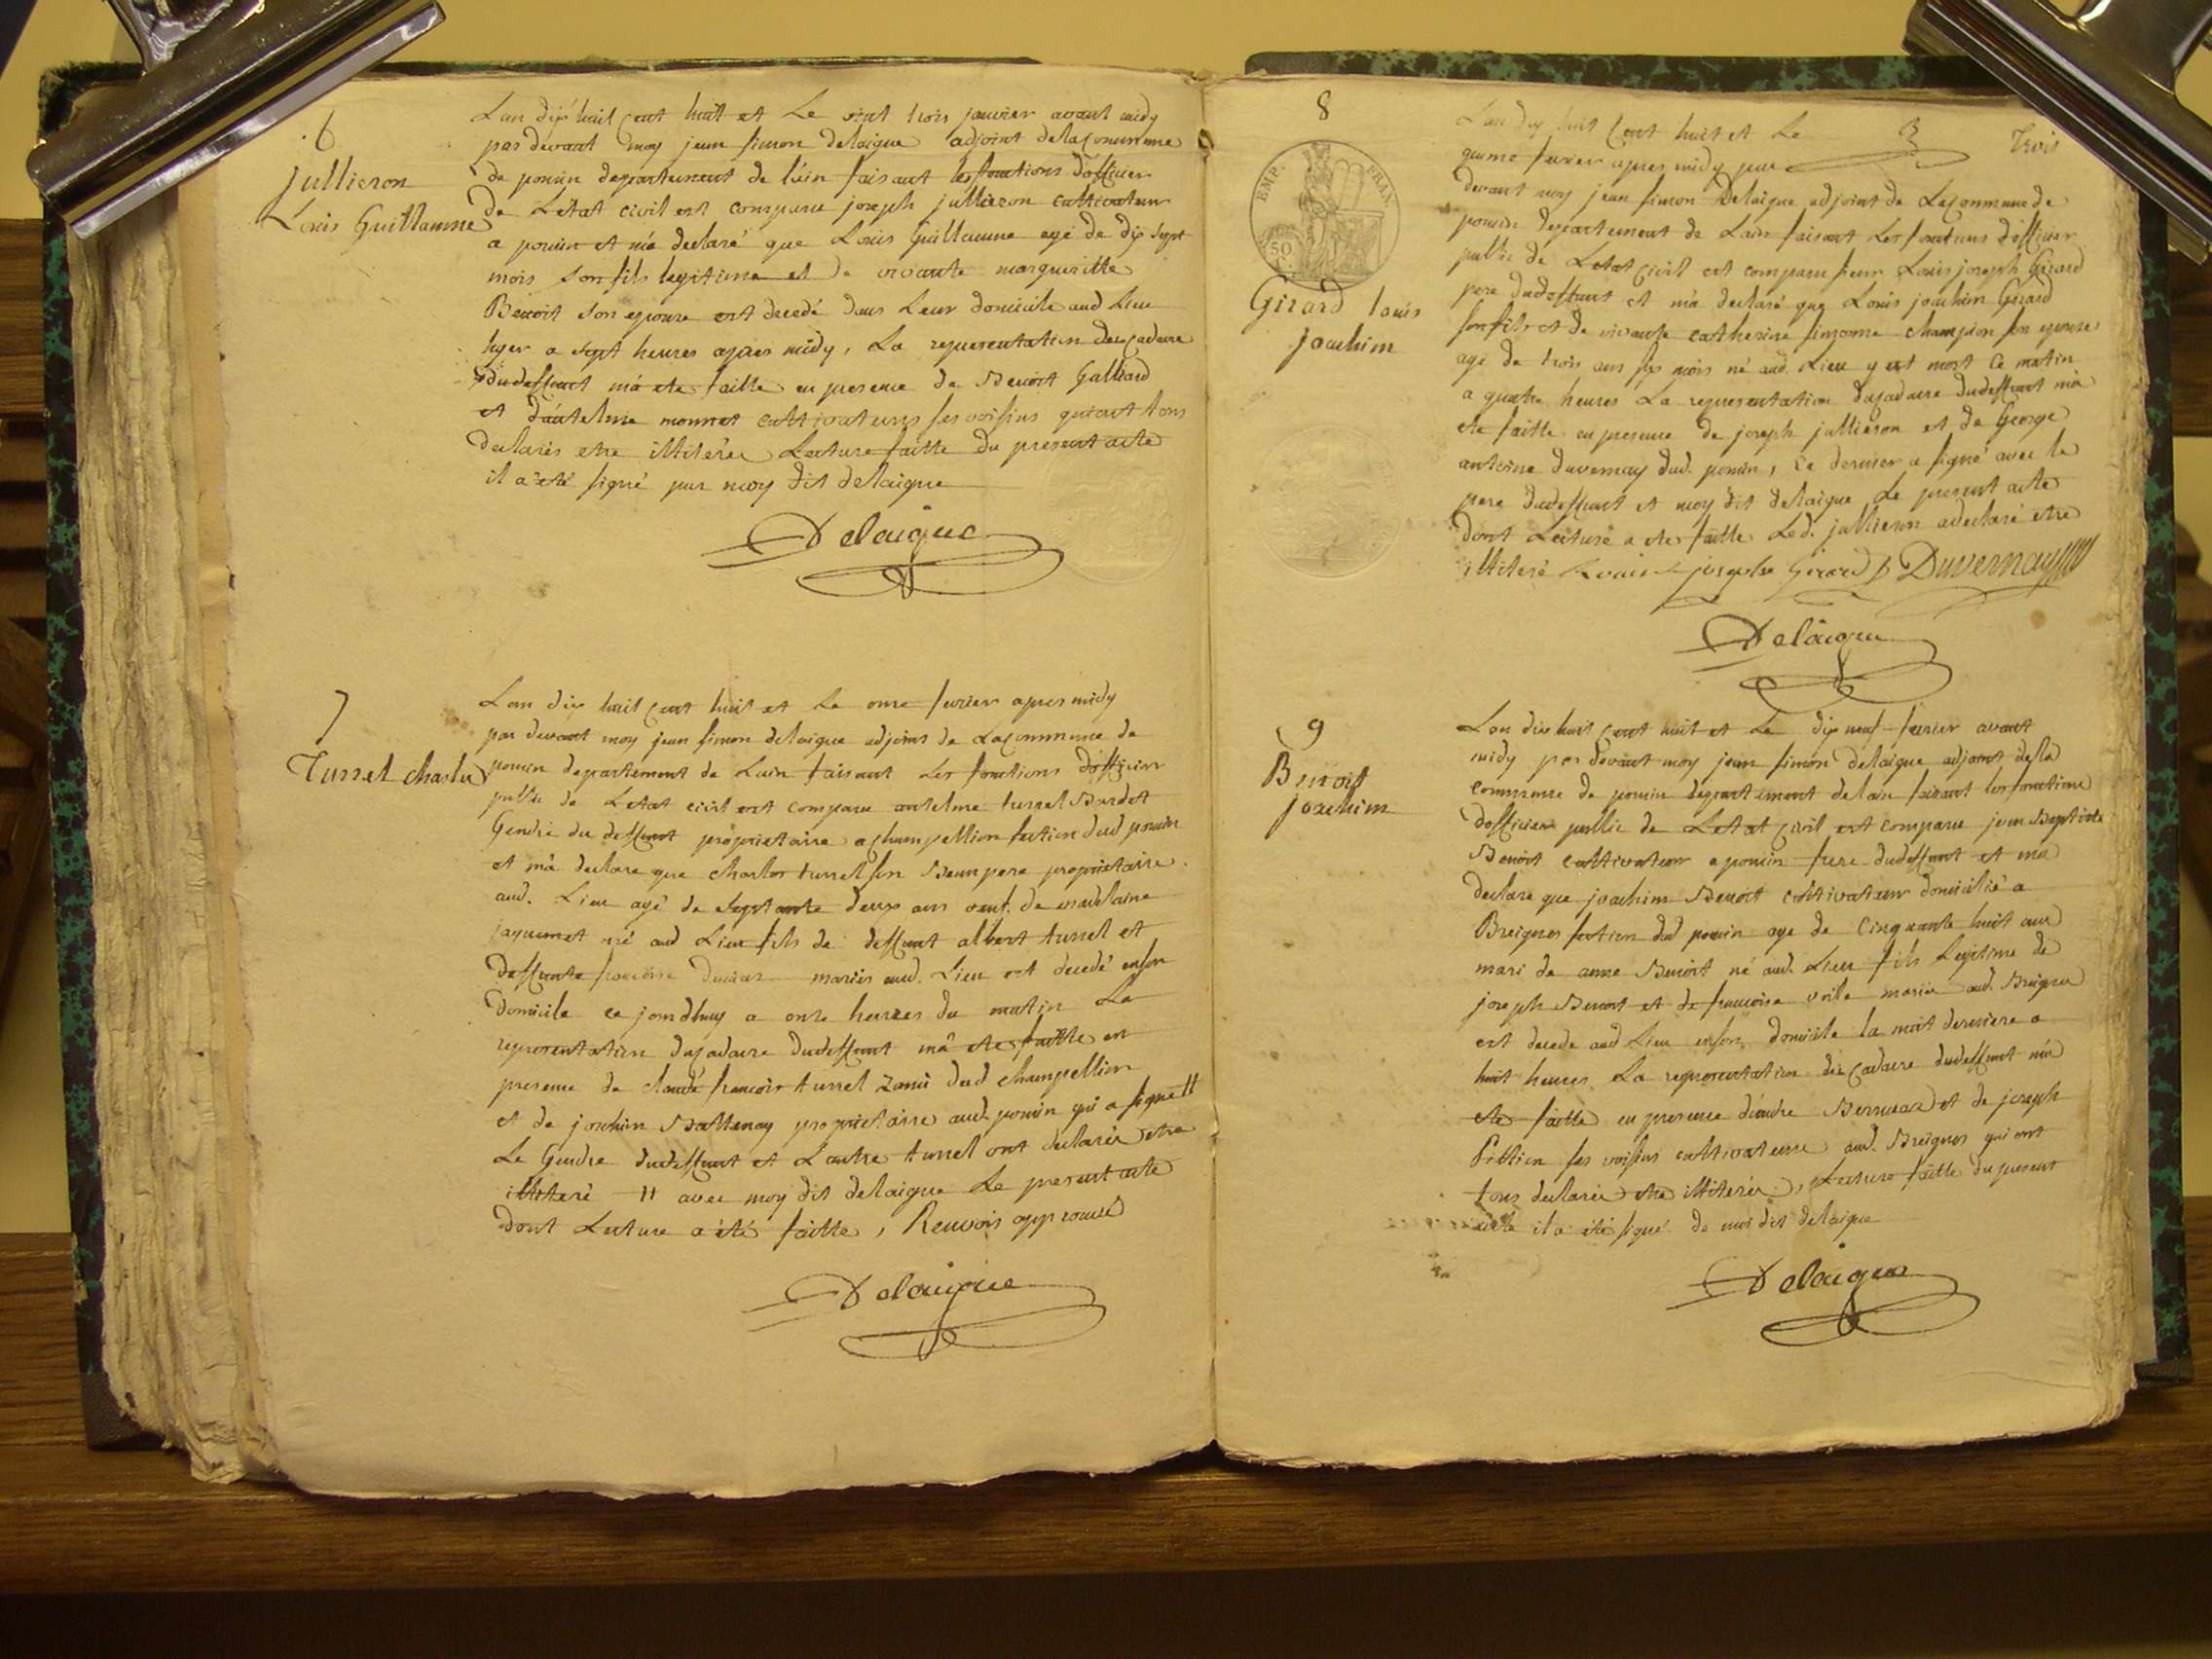 6
jullieron
Louis Guillaume
Lan dix huit cent huit et Le vint trois janvier avant midy
par devant moy jean simon delaigue adjoint de la Commune
de pouin departement de l'ain faisant les fonctions d'officier
de L'état civil est comparu joseph jullieron cultivateur
a pouin et m'a declaré que Louis Guillaume agé de dix sept
mois son fils legitime et de vivante margueritte
Benoit son epouse est decedé dans Leur domicile aud Lieu
hyer a sept heures apres midy, La representation du cadavre
du deffunt m'a ete faitte en presence de Benoit Galliard
et d'antelme monnet cultivateurs ses voisins qui ont tous
declarés etre illiterée Lecture faitte du present acte
il a été signé par moy dit delaigue
Delaigue
7
Turrel charles
Lan dix huit cent huit et Le onze fevrier apres midy
par devant moy jean simon delaigue adjoint de La commune de
pouin departement de Lain faisant Les fonctions d'officier
public de L'etat civil est comparu antelme turrel Bardet
Gendre du deffunt proprietaire a champellion section dud pouin
et m'a declare que charles turrel son Beaupere proprietaire
aud. Lieu agé de septante deux ans veuf de madelaine
jaquemet né aud Lieu fils de deffunt albert turrel et
deffunte francoise mariés aud. Lieu est decedé en son
domicile ce jourdhuy a onze heures du matin La
representation du cadavre du deffunt m'a ete faitte en
presence de claude francois turrel dud champellion
et de joachim Battenay proprietaire aud. pouin qui a signé #
Le Gendre du deffunt et L'autre turrel ont declarée etre
illiteré # avec moy dit delaigue Le present acte
dont Lecture a été faitte, Renvois approuvé
Delaigue
8
3
Trois
EMP. FRAN.
50 C.
Girard louis
joachim
L'an dix huit cent huit et Le
quinze fevrier apres midy par
devant moy jean simon Delaigue adjoint de La commune de
pouin departement de Lain faisant Les fonctions d'officier
public de L'etat civil est comparu sieur Louis joseph Girard
pere du deffunt et m'a declaré que Louis joachim Girard
son fils et de vivante catherine simonne champion son epouse
agé de trois ans six mois né aud. Lieu y est mort ce matin
a quatre heures La representation du cadavre du deffunt m'a
ete faitte en presence de joseph jullieron et de George
antoine duvernay dud. pouin, ce dernier a signé avec le
pere du deffunt et moy dit delaigue Le present acte
dont Lecture a ete faitte Led. jullieron a declaré etre
illiteré Louis joseph Girard Duvernay
Delaigue
9
Benoit
joachim
Lan dix huit cent huit et Le dix neuf fevrier avant
midy par devant moy jean simon delaigue adjoint de la
commune de pouin departement de lain faisant les fonctions
d'officier public de L'etat civil est comparu jean Baptiste
Benoit cultivateur a pouin frere du deffunt et m'a
declare que joachim Benoit cultivateur domicilié a
Breignes section dud pouin age de cinquante huit ans
mari de anne Benoit né aud. Lieu fils Legitime de
joseph Benoit et de francoise mariés aud. Breignes
est decede aud Lieu en son domicile la nuit derniere a
huit heures La representation du cadavre du deffunt m'a
ete faitte en presence d'andre et de joseph
Pittion ses voisins cultivateurs aud. Breignes qui ont
tous declarée etre illiterée, Lecture faitte du present
acte il a été signé de moi dit delaigue
Delaigue